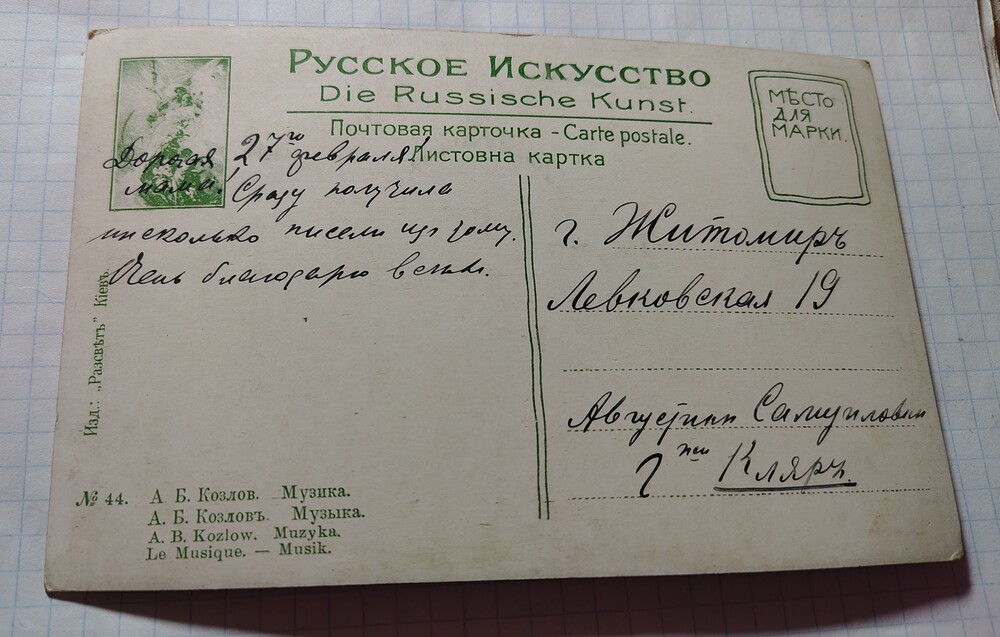 Русское Искусство
Die Russische Kunst.
Почтовая карточка - Carte postale.
Листовна картка
МѢСТО
ДЛЯ
МАРКИ.
27го февраля!
Дорогая
мама! Сразу получила
нисколько писем изъ дому.
Очень благодарю всѣмъ.
г. Житомиръ
Левковская 19
Августѣ Самуиловнѣ
Г-жѣ Кляръ.
Изд.: „Разсвѣтъ" Кіевъ.
№ 44. А. Б. Козлов. Музика.
А. Б. Козловъ. Музыка.
A. B. Kozlow. Muzyka.
Le Musique. — Musik.